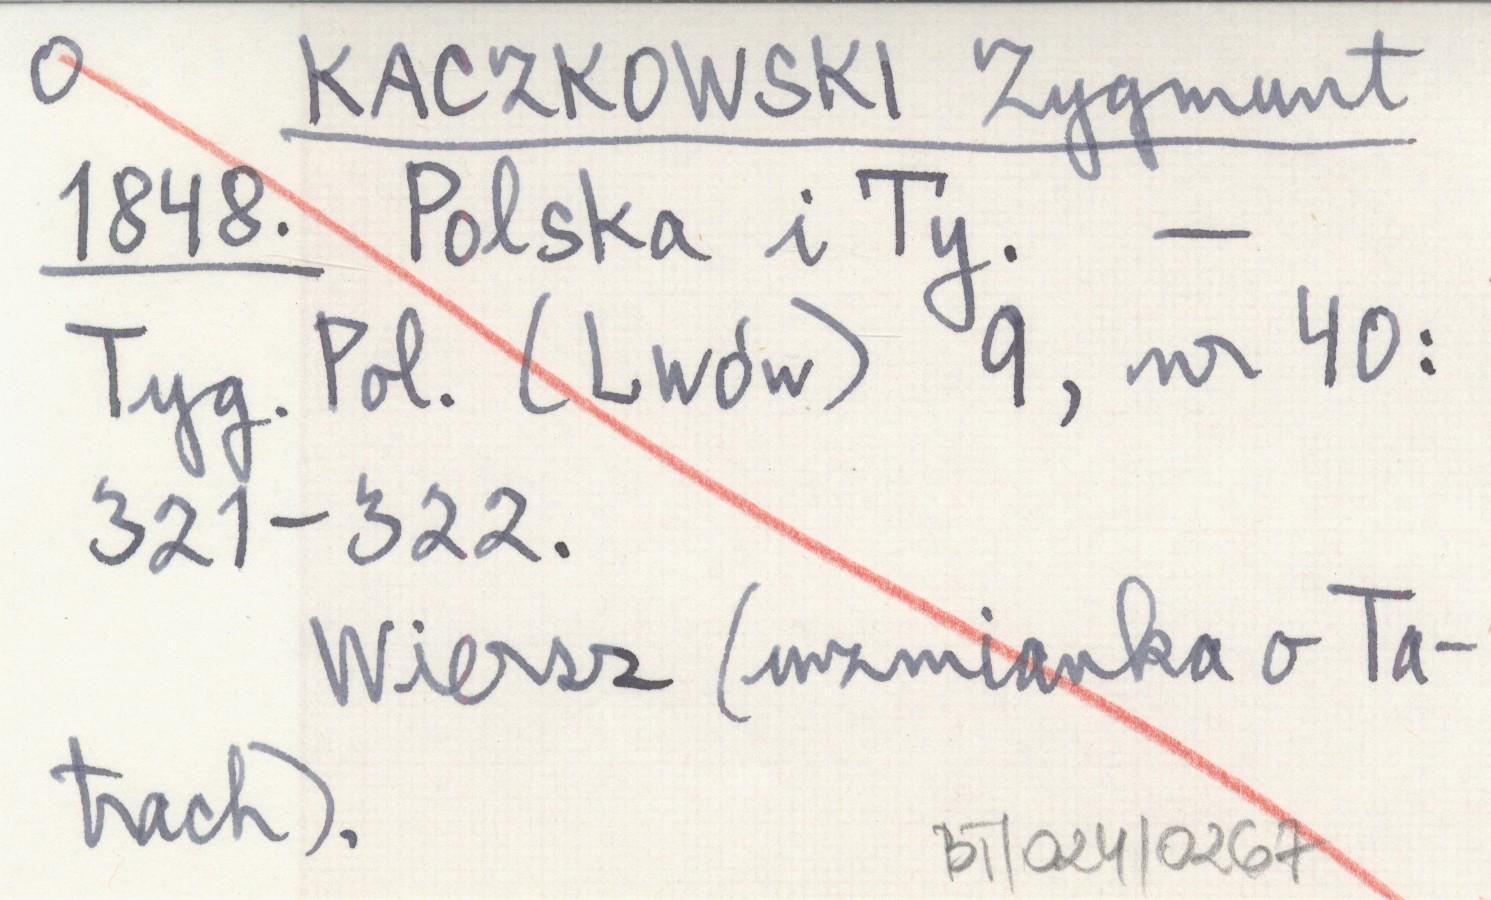 O KACZKOWSKI Zygmunt
1848. Polska i Ty. —
Tyg. Pol. (Lwów) 9, nr 40:
321-322.
Wiersz (wzmianka o Ta-
trach).
BT/024/0267